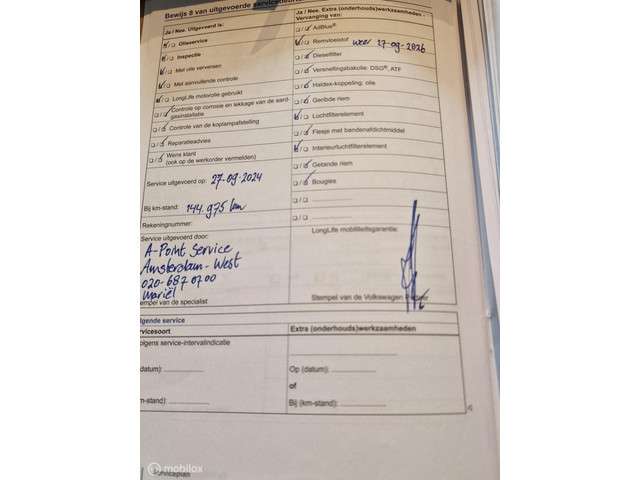 Bewijs 8 van uitgevoerde
Ja / Nee. Uitgevoerd is:
Olieservice
Inspectie
Met olie verversen
Met aanvullende controle
LongLife motorolie gebruikt
Controle op corrosie en lekkage van de aard-
gasinstallatie
Controle van de koplampafstelling
Reparatieadvies
Wens klant
(ook op de werkorder vermelden)
Service uitgevoerd op: 27-09-2024
Bij km-stand: 144.975 km
Rekeningnummer:
Service uitgevoerd door:
A-Point Service
Amsterdam-West
020-687 07 00
Mariël
Stempel van de specialist
Ja / Nee. Extra (onderhouds)werkzaamheden -
Vervanging van:
AdBlue®
Remvloeistof weer 27-09-2026
Dieselfilter
Versnellingsbakolie: DSG®, ATF
Haldex-koppeling: olie
Geribde riem
Luchtfilterelement
Flesje met bandenafdichtmiddel
Interieurluchtfilterelement
Getande riem
Bougies
LongLife mobiliteitsgarantie:
Stempel van de Volkswagen
lgende service
rvicesoort
olgens service-intervalindicatie
datum):
m-stand):
Extra (onderhouds)werkzaamheden
Op (datum):
of
Bij (km-stand):
mobilox